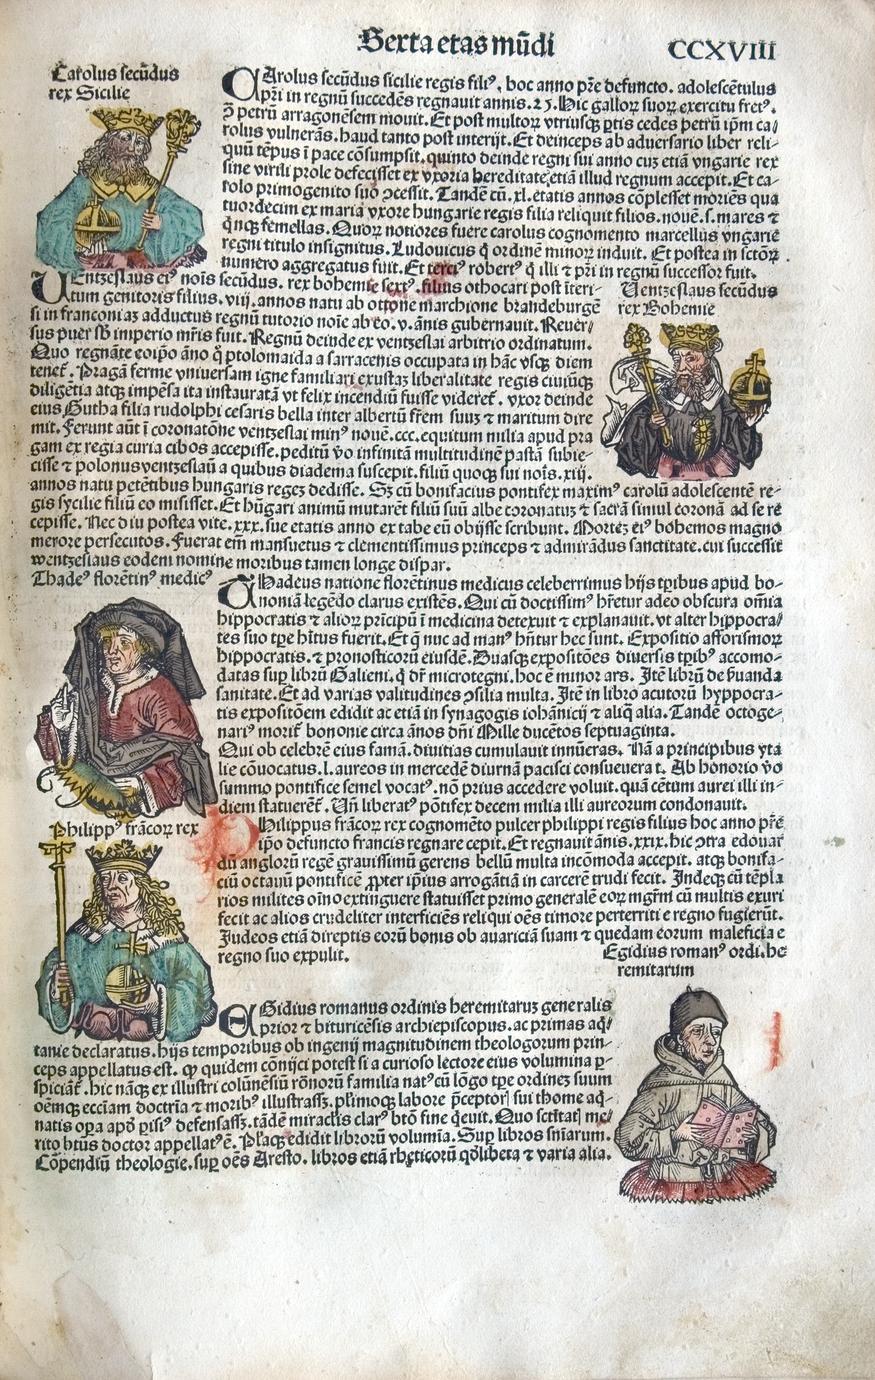 Sexta etas mũdi
CCXVIII
Carolus secũdus
rex Sicilie
CArolus secũdus sicilie regis filiꝰ, hoc anno pr̃e defuncto. adolescẽtulus
pr̃i in regnũ succedẽs regnauit annis.25. Hic galloꝝ suoꝝ exercitu fretꝰ.
ꝯ̃ petrũ arragonẽsem mouit. Et post multoꝝ vtriusqꝫ ꝑtis cedes petrũ ip̃m ca/
rolus vulnerãs. haud tanto post interijt. Et deinceps ab aduersario liber reli-
quũ tẽpus ĩ pace cõsumpsit. quinto deinde regni sui anno cuꝫ etiã vngarie rex
sine virili prole defecisset ex vxoria hereditate etiã illud regnum accepit. Et ca-
rolo primogenito suo ꝯcessit. Tandẽ cũ.xl.etatis annos cõplesset moriẽs qua
tuordecim ex maria vxore hungarie regis filia reliquit filios. nouẽ.s.mares ⁊
q̃nqꝫ femellas. Quoꝝ notiores fuere carolus cognomento marcellus vngarie
regni titulo insignitus. Ludouicus q̃ ordinẽ minoꝝ induit. Et postea in sctõꝝ
numero aggregatus fuit. Et terciꝰ robertꝰ q̃ illi ⁊ pr̃i in regnũ successor fuit.
VEntzeslaus eiꝰ nois secũdus. rex bohemie sextꝰ. filius othocari post ĩteri-
tum genitoris filius.viij.annos natu ab ottone marchione brandeburgẽ
si in franconiaꝫ adductus regnũ tutorio noĩe ab eo.v.ãnis gubernauit. Reuer/
sus puer sb̃ imperio mr̃is fuit. Regnũ deinde ex ventzeslai arbitrio ordinatum.
Quo regnãte eoip̃o ãno q̃ ptolomaida a sarracenis occupata in hãc vsqꝫ diem
tenet̃. Pragã ferme vniuersam igne familiari exustaꝫ liberalitate regis eiusqꝫ
diligẽtia atqꝫ impẽsa ita instauratã vt felix incendiũ fuisse videret̃. vxor deinde
eius Gutha filia rudolphi cesaris bella inter albertũ fr̃em suuꝫ ⁊ maritum dire
mit. Ferunt aũt ĩ coronatõne ventzeslai minꝰ nouẽ.ccc.equitum milia apud pra
gam ex regia curia cibos accepisse. peditũ ṽo infinitã multitudinẽ pastã subie-
cisse ⁊ polonus ventzeslaũ a quibus diadema suscepit. filiũ quoqꝫ sui noĩs.xiij.
annos natu petẽtibus hungaris regeꝫ dedisse. Sꝫ cũ bonifacius pontifex maximꝰ carolũ adolescentẽ re-
gis sycilie filiũ eo misisset. Et hũgari animũ mutarẽt filiũ suũ albe coronatuꝫ ⁊ sacrã simul coronã ad se re
cepisse. Nec diu postea vite.xxx.sue etatis anno ex tabe eũ obijsse scribunt. Mortez eiꝰ bohemos magno
merore persecutos. Fuerat em̃ mansuetus ⁊ clementissimus princeps ⁊ admirãdus sanctitate. cui successit
wentzeslaus eodem nomine moribus tamen longe dispar.
Ventzeslaus secũdus
rex Bohemie
Thadeꝰ florẽtinꝰ medicꝰ
THadeus natione florẽtinus medicus celeberrimus hijs tp̃ibus apud bo-
noniã legẽdo clarus existẽs. Qui cũ doctissimꝰ hr̃etur adeo obscura om̃ia
hippocratis ⁊ alioꝝ prĩcipũ ĩ medicina detexuit ⁊ explanauit. vt alter hippocra/
tes suo tp̃e hr̃tus fuerit. Et q̃ nuc ad manꝰ hñtur hec sunt. Expositio afforismoꝝ
hippocratis. ⁊ pronosticorũ eiusdẽ. Duasqꝫ expositões diuersis tp̃ibꝰ accomo-
datas sup̱ librũ Galieni. q̃ dr̃ microtegni. hoc ẽ minor ars. Itẽ librũ de p̃uanda
sanitate. Et ad varias valitudines ꝯsilia multa. Itẽ in libro acutorũ hyppocra-
tis expositõem edidit ac etiã in synagogis iohãnicij ⁊ aliq̃ alia. Tandẽ octoge-
nariꝰ morit̃ bononie circa ãnos dñi Mille ducẽtos septuaginta.
Qui ob celebrẽ eius famã. diuitias cumulauit innũeras. Nã a principibus yta
lie cõuocatus.l.aureos in mercedẽ diurnã pacisci consueuerat. Ab honorio ṽo
summo pontifice semel vocatꝰ. nõ prius accedere voluit. quã cẽtum aurei illi in-
diem statuerẽt. Uñ liberatꝰ põtifex decem milia illi aureorum condonauit.
Philippꝰ frãcoꝝ rex
PHilippus frãcoꝝ rex cognomẽto pulcer philippi regis filius hoc anno pr̃e
ip̃o defuncto francis regnare cepit. Et regnauit ãnis.xxix. hic ꝯtra edouar
dũ anglorũ regẽ grauissimũ gerens bellũ multa incõmoda accepit. atqꝫ bonifa-
ciũ octauũ pontificẽ ꝓpter ip̃ius arrogãtiã in carcerẽ trudi fecit. Indeqꝫ cũ tẽpla
rios milites oĩno extinguere statuisset primo generalẽ eoꝝ mgr̃m cũ multis exuri
fecit ac alios crudeliter interficiẽs reliqui oẽs timore perterriti e regno fugierũt.
Judeos etiã direptis eorũ bonis ob auariciã suam ⁊ quedam eorum maleficia e
regno suo expulit.
Egidius romanꝰ ordi. he
remitarum
EGidius romanus ordinis heremitaruꝫ generalis
prior ⁊ bituricẽsis archiepiscopus. ac primas aq̃/
tanie declaratus. hijs temporibus ob ingenij magnitudinem theologorum prin-
ceps appellatus est. ꝙ quidem cõnijci potest si a curioso lectore eius volumina ꝑ-
spiciat̃. hic nãqꝫ ex illustri colũnẽsiũ rõnorũ familia natꝰ cũ lõgo tp̃e ordineꝫ suum
oẽmqꝫ eccl̃iam doctrĩa ⁊ moribꝰ illustrass̃ꝫ. pl̃imoqꝫ labore p̃ceptorꝭ sui thome aq̃-
natis op̱a apꝰ ꝑisiꝰ defensass̃ꝫ. tãdẽ miraclis clarꝰ btõ fine q̃euit. Quo sctitatꝭ me/
rito bt̃us doctor appellatꝰ ẽ. Pl̃aqꝫ edidit librorũ volumĩa. Sup̱ libros sñiarum.
Cõpendiũ theologie. sup̱ oẽs Aresto. libros etiã rheticorũ qõlibeta ⁊ varia alia.